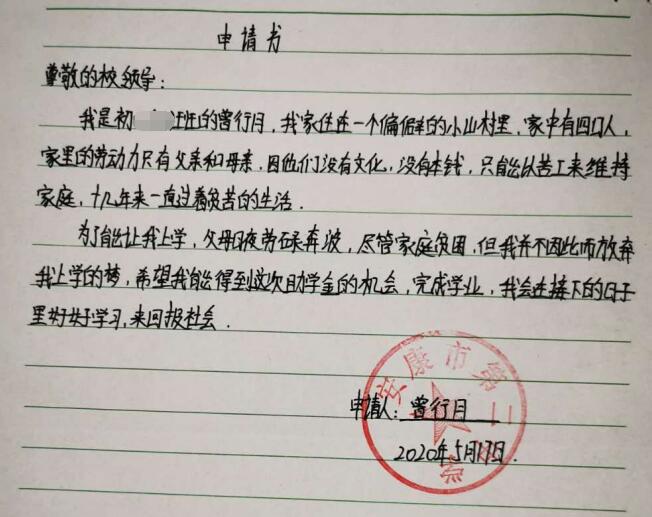 申请书
尊敬的校领导：
我是初班的曾行月，我家住在一个偏僻的小山村里，家中有四口人，
家里的劳动力只有父亲和母亲，因他们没有文化，没有本钱，只能以苦工来维持
家庭，十几年来一直过着贫苦的生活．
为了能让我上学，父母日夜劳碌奔波，尽管家庭贫困，但我并不因此而放弃
我上学的梦，希望我能得到这次助学金的机会，完成学业，我会在接下的日子
里好好学习，来回报社会．
安康市第二中学
申请人：曾行月
2020年5月17日．